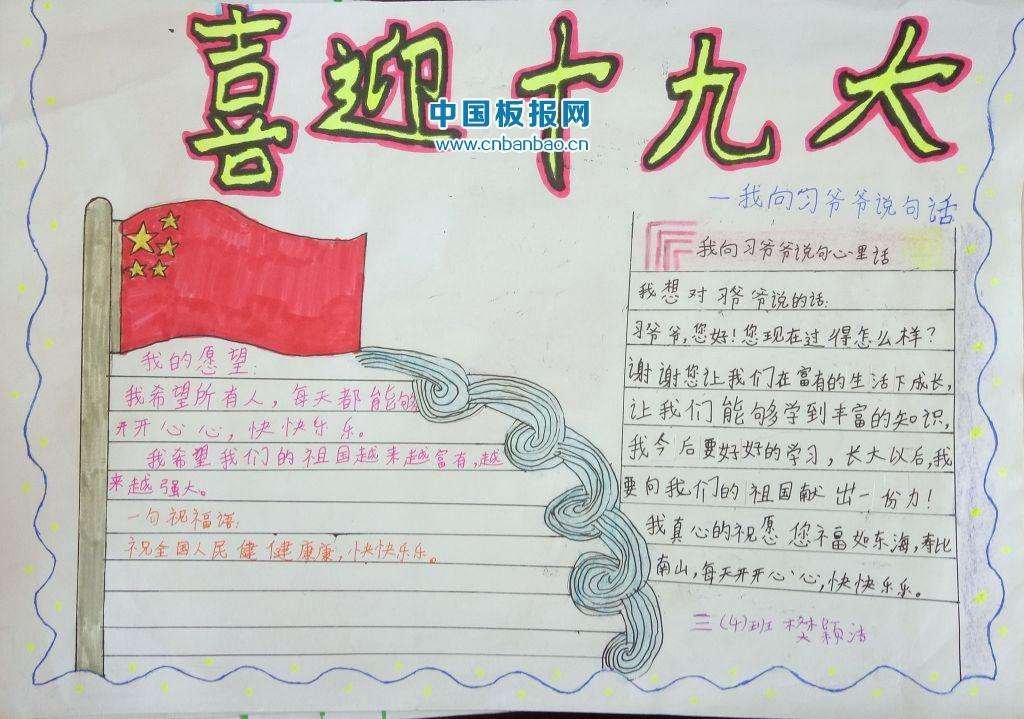 喜迎十九大
中国板报网
www.cnbanbao.cn
一我向习爷爷说句话
我的愿望:
我希望所有人，每天都能够
开开心心，快快乐乐。
我希望我们的祖国越来越富有，越
来越强大。
一句祝福语:
祝全国人民健健康康，快快乐乐。
我向习爷爷说句心里话
我想对习爷爷说的话:
习爷爷，您好！您现在过得怎么样？
谢谢您让我们在富有的生活下成长，
让我们能够学到丰富的知识，
我今后要好好的学习，长大以后，我
要向我们的祖国献出一份力！
我真心的祝愿您福如东海，寿比
南山，每天开开心心，快快乐乐。
三(4)班樊颖洁